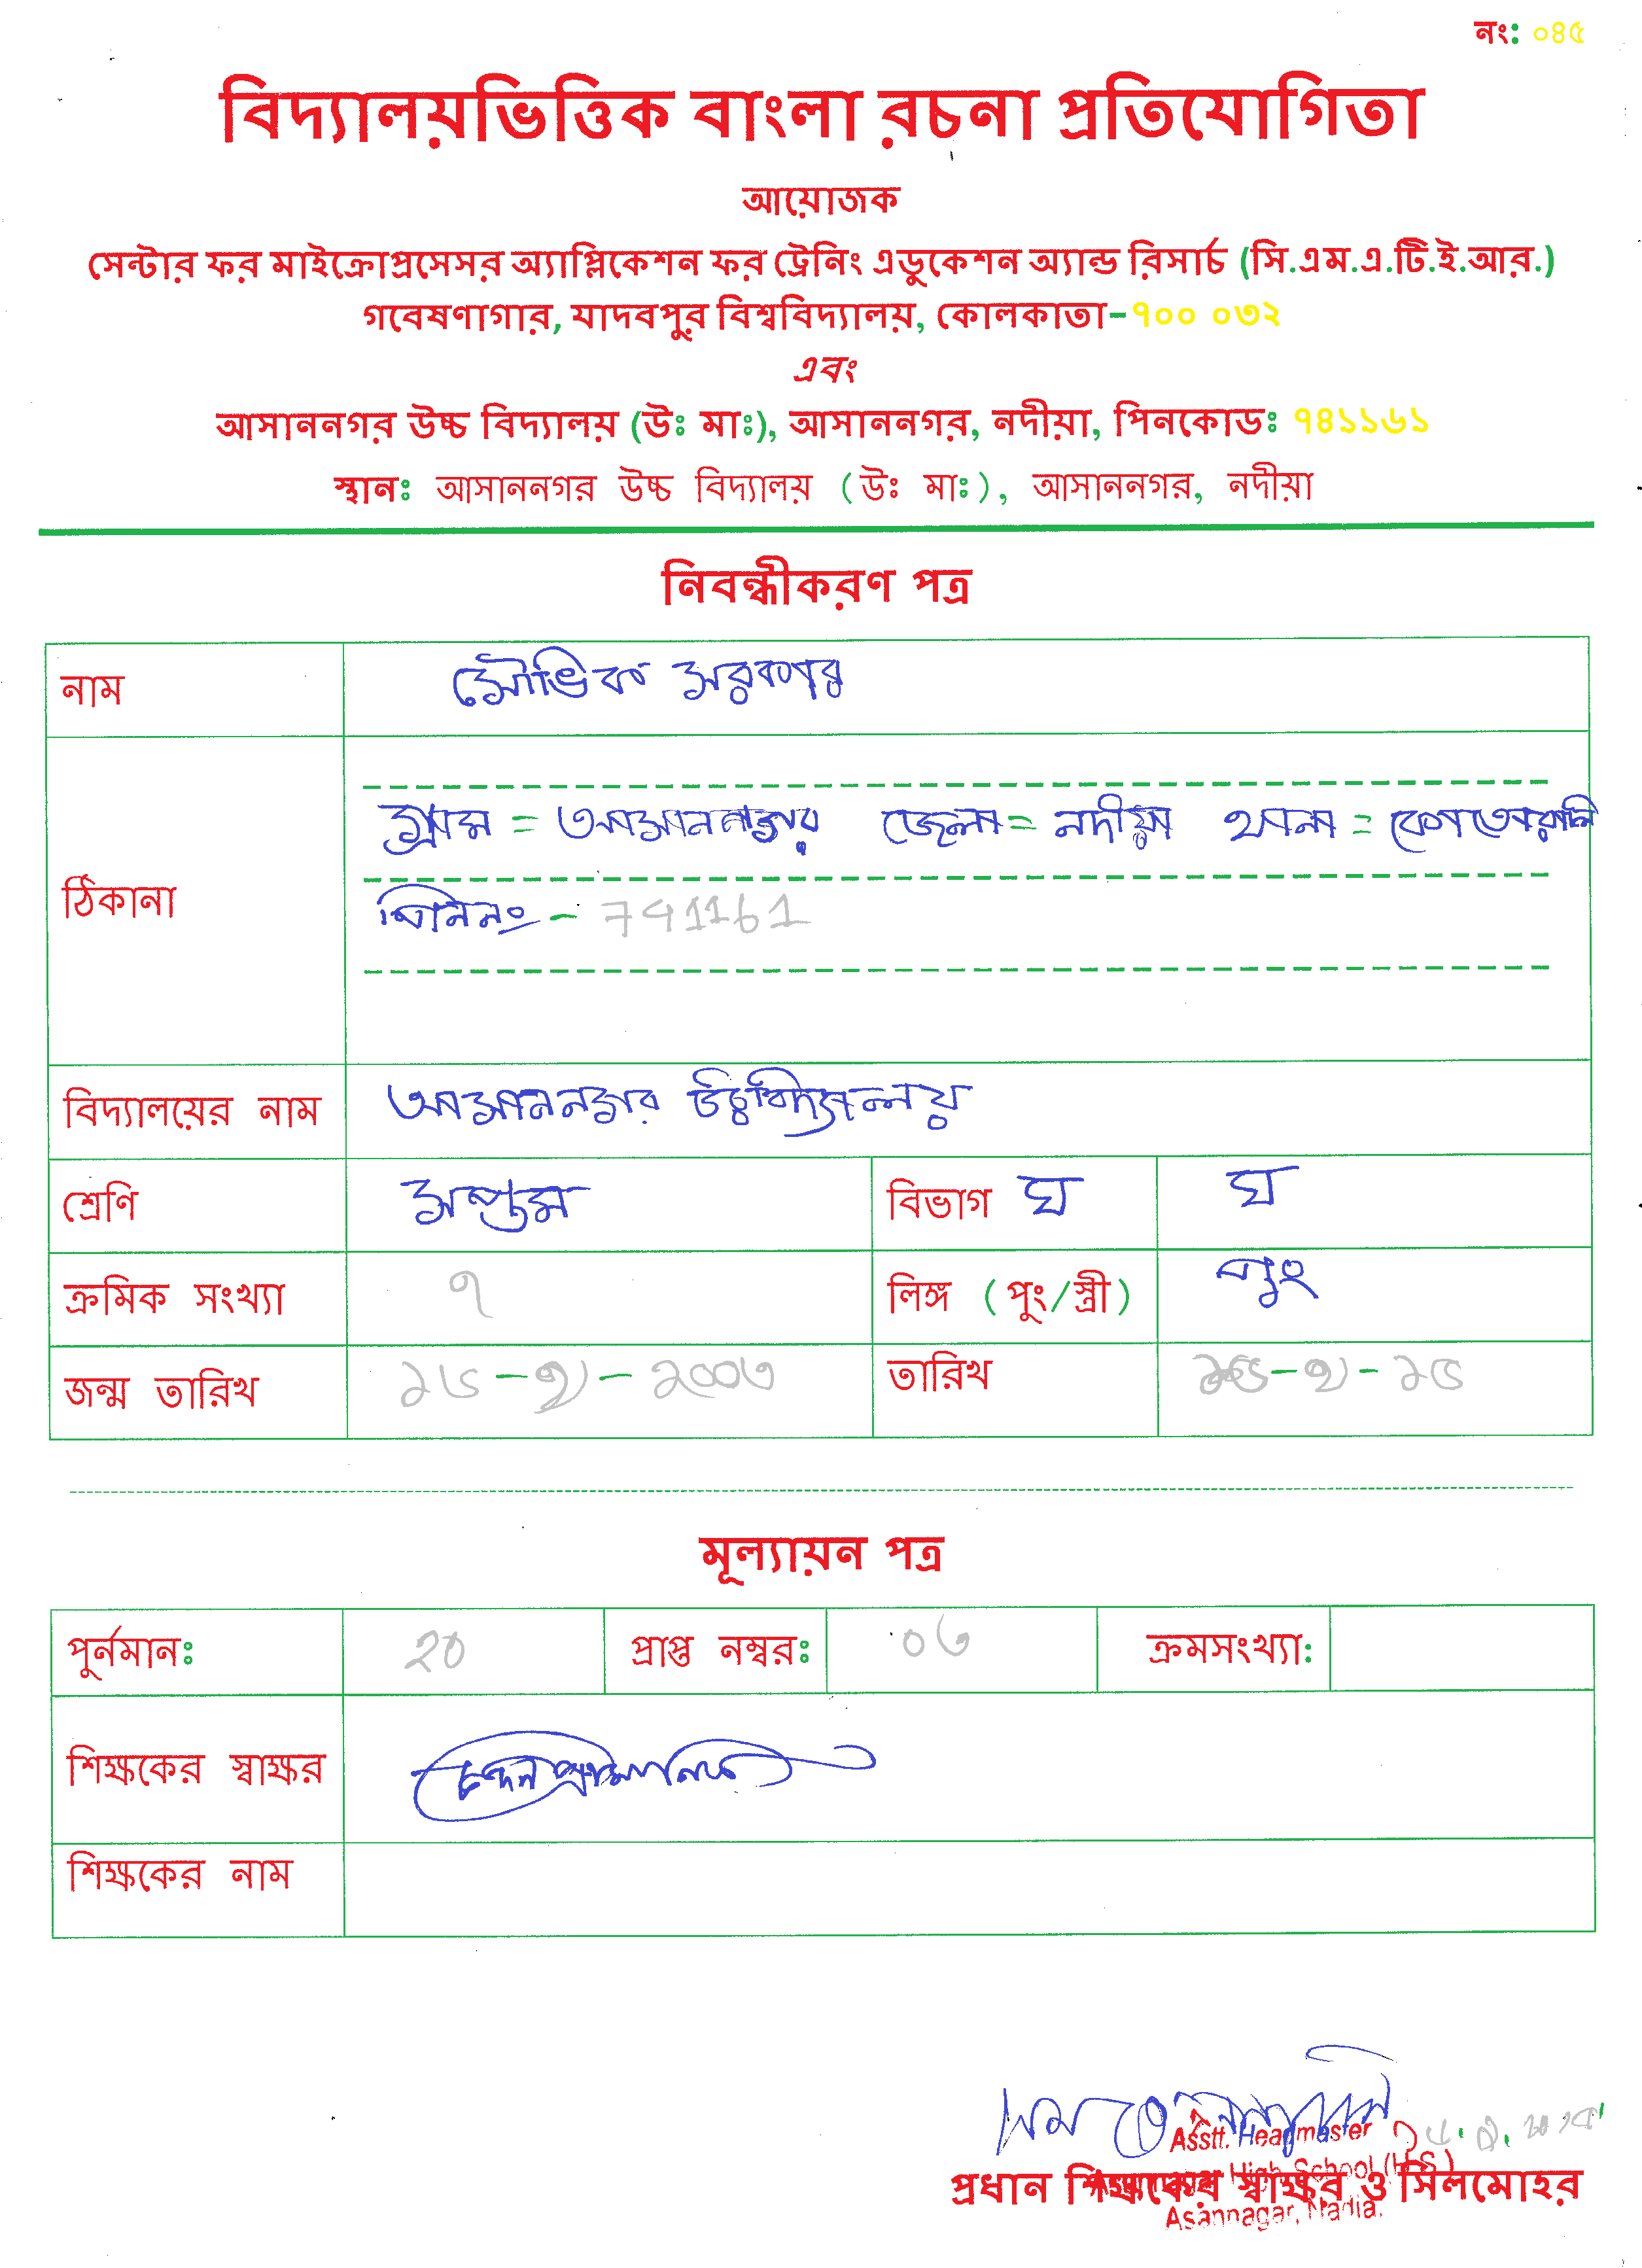 নং: ০৪৫
বিদ্যালয়ভিত্তিক বাংলা রচনা প্রতিযোগিতা
আয়োজক
সেন্টার ফর মাইক্রোপ্রসেসর অ্যাপ্লিকেশন ফর ট্রেনিং এডুকেশন অ্যান্ড রিসার্চ (সি.এম.এ.টি.ই.আর.)
গবেষণাগার, যাদবপুর বিশ্ববিদ্যালয়, কোলকাতা-৭০০ ০৩২
এবং
আসাননগর উচ্চ বিদ্যালয় (উঃ মাঃ), আসাননগর, নদীয়া, পিনকোডঃ ৭৪১১৬১
স্থানঃ আসাননগর উচ্চ বিদ্যালয় (উঃ মাঃ), আসাননগর, নদীয়া
নিবন্ধীকরণ পত্র
নাম সৌভিক সরকার
ঠিকানা
গ্রাম = আসাননগর জেলা = নদীয়া থানা = কোতোয়ালি
পিননং - 741161
বিদ্যালয়ের নাম আসাননগর উচ্চবিদ্যালয়
শ্রেণি সপ্তম বিভাগ ঘ ঘ
ক্রমিক সংখ্যা ৭ লিঙ্গ (পুং/স্ত্রী) পুং
জন্ম তারিখ তারিখ
মূল্যায়ন পত্র
পুর্নমানঃ 20 প্রাপ্ত নম্বরঃ ০৬ ক্রমসংখ্যা:
শিক্ষকের স্বাক্ষর
শিক্ষকের নাম
Asstt. Headmaster
প্রধান শিক্ষকের স্বাক্ষর ও সিলমোহর
High School (H.S.)
Asannagar, Nadia.